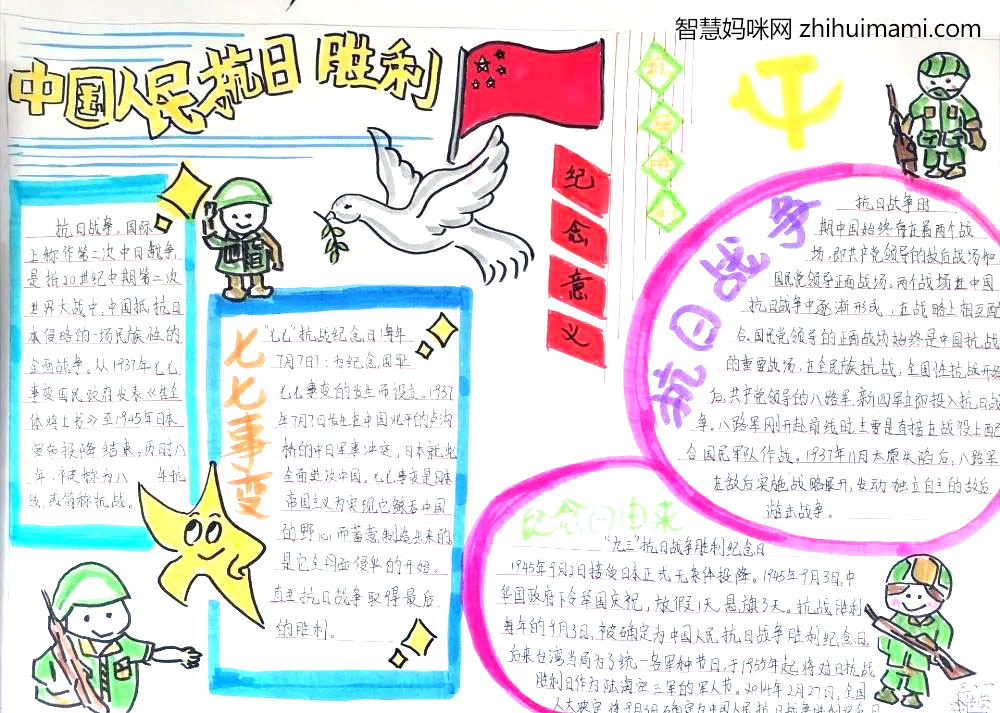 智慧妈咪网 zhihuimami.com
中国人民抗日胜利
纪
念
意
义
抗日战争,国际
上称作第二次中日战争,
是指20世纪中期第二次
世界大战中,中国抵抗日
本侵略的一场民族性的
全面战争。从1937年七七
事变国民政府发表《告全
体将士书》至1945年日本
宣布投降结束,历时八
年,被称为八 年抗
战,或简称抗战。
七七事变
“七七”抗战纪念日(每年
7月7日):为纪念国耻
七七事变的发生而设立。1937
年7月7日发生在中国北平的卢沟
桥的中日军事冲突,日本就此
全面进攻中国。七七事变是日本
帝国主义为实现它鲸吞中国
的野心而蓄意制造出来的
是它全面侵华的开始。
直至抗日战争取得最后
的胜利。
抗日战争
抗日战争时
期中国始终存在着两个战
场,即共产党领导的敌后战场和
国民党领导正面战场。两个战场在中国
抗日战争中逐渐形成,在战略上相互配
合。国民党领导的正面战场始终是中国抗战
的重要战场,在全民族抗战,全国性抗战开始
后,共产党领导的八路军新四军立即投入抗日战
争,八路军刚开赴前线时主要是直接在战役上配
合国民军队作战。1937年11月太原失陷后,八路军
在敌后实施战略展开,发动独立自主的敌后
游击战争。
纪念日由来
“九三”抗日战争胜利纪念日
1945年9月2日接受日本正式无条件投降。1945年9月3日,中
华国政府下令举国庆祝,放假1天悬旗3天。抗战胜利
每年的9月3日,被确定为中国人民抗日战争胜利纪念日。
后来台湾当局为了统一各军种节日,于1955年起将对日抗战
胜利日作为陆海空三军的军人节。2014年2月27日,全国
人大决定将9月3日确定为中国人民抗日战争胜利纪念日